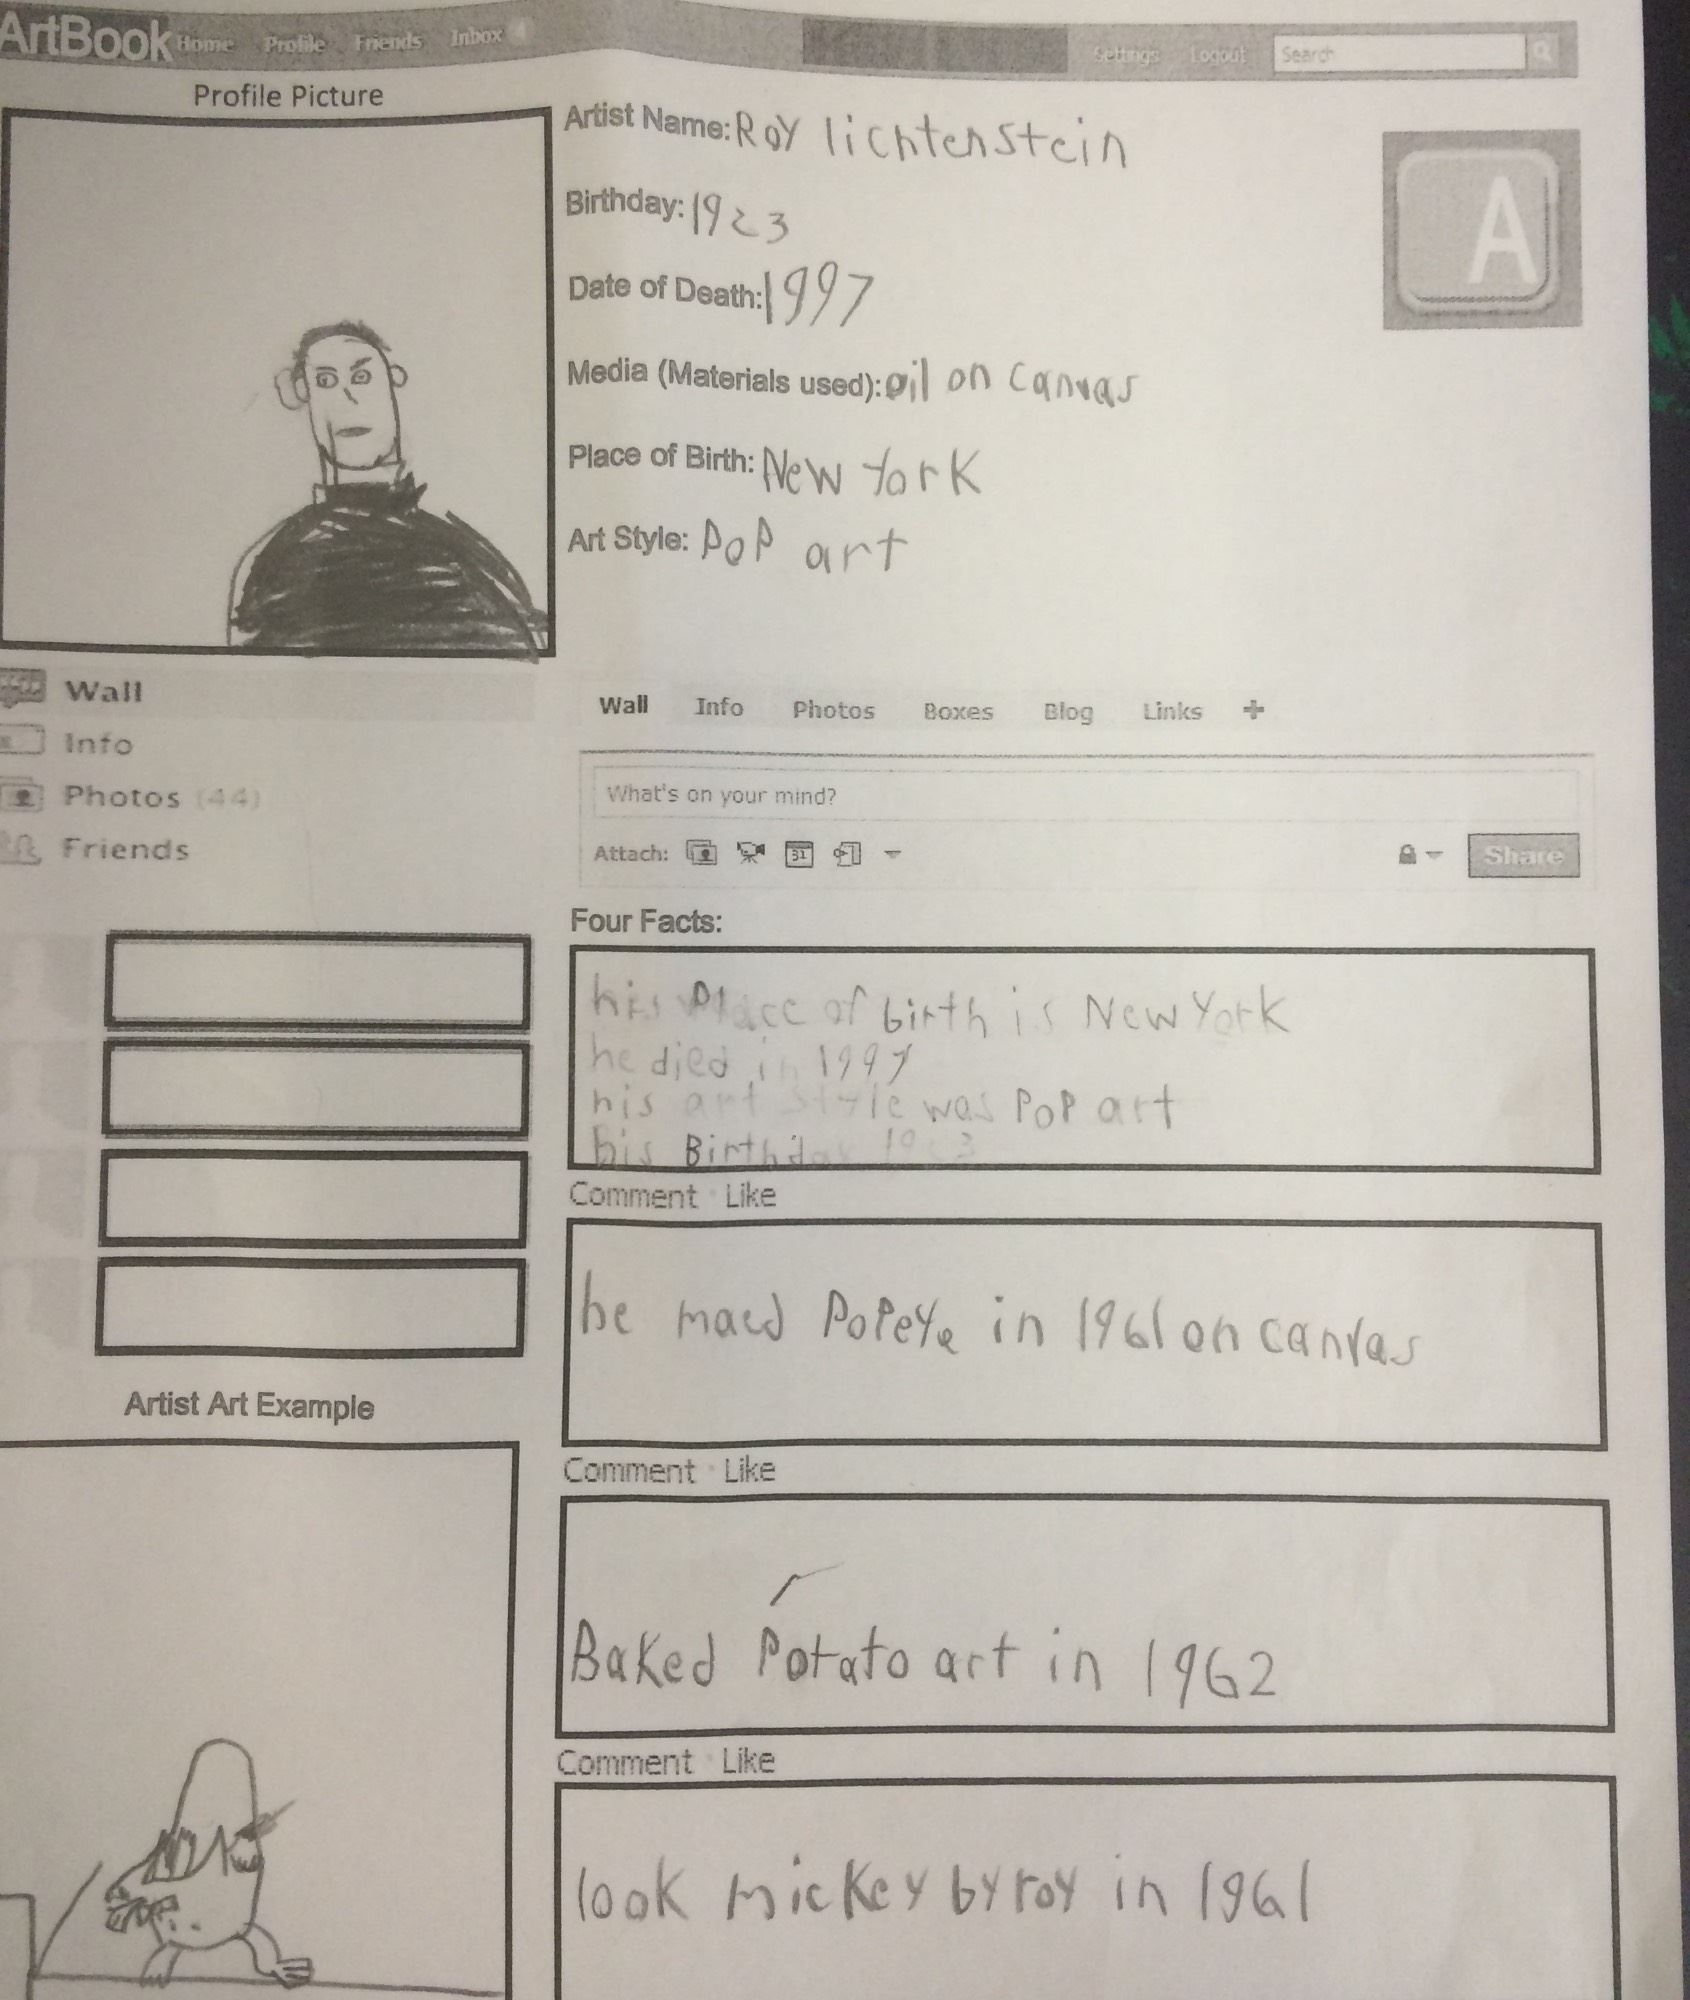 ArtBook Home Profile Friends Inbox Settings Logout Search
Profile Picture
Artist Name: Roy lichtenstein
Birthday: 1923
Date of Death: 1997
Media (Materials used): oil on canvas
Place of Birth: New York
Art Style: Pop art
A
Wall
Info
Photos (44)
Friends
Wall Info Photos Boxes Blog Links +
What's on your mind?
Attach: 31 Share
Four Facts:
his Place of birth is New York
he died in 1997
his art style was PoP art
his Birthday 1923
Comment · Like
he maed Popeye in 1961 on canvas
Comment · Like
Baked Potato art in 1962
Comment · Like
look mickey by roy in 1961
Artist Art Example